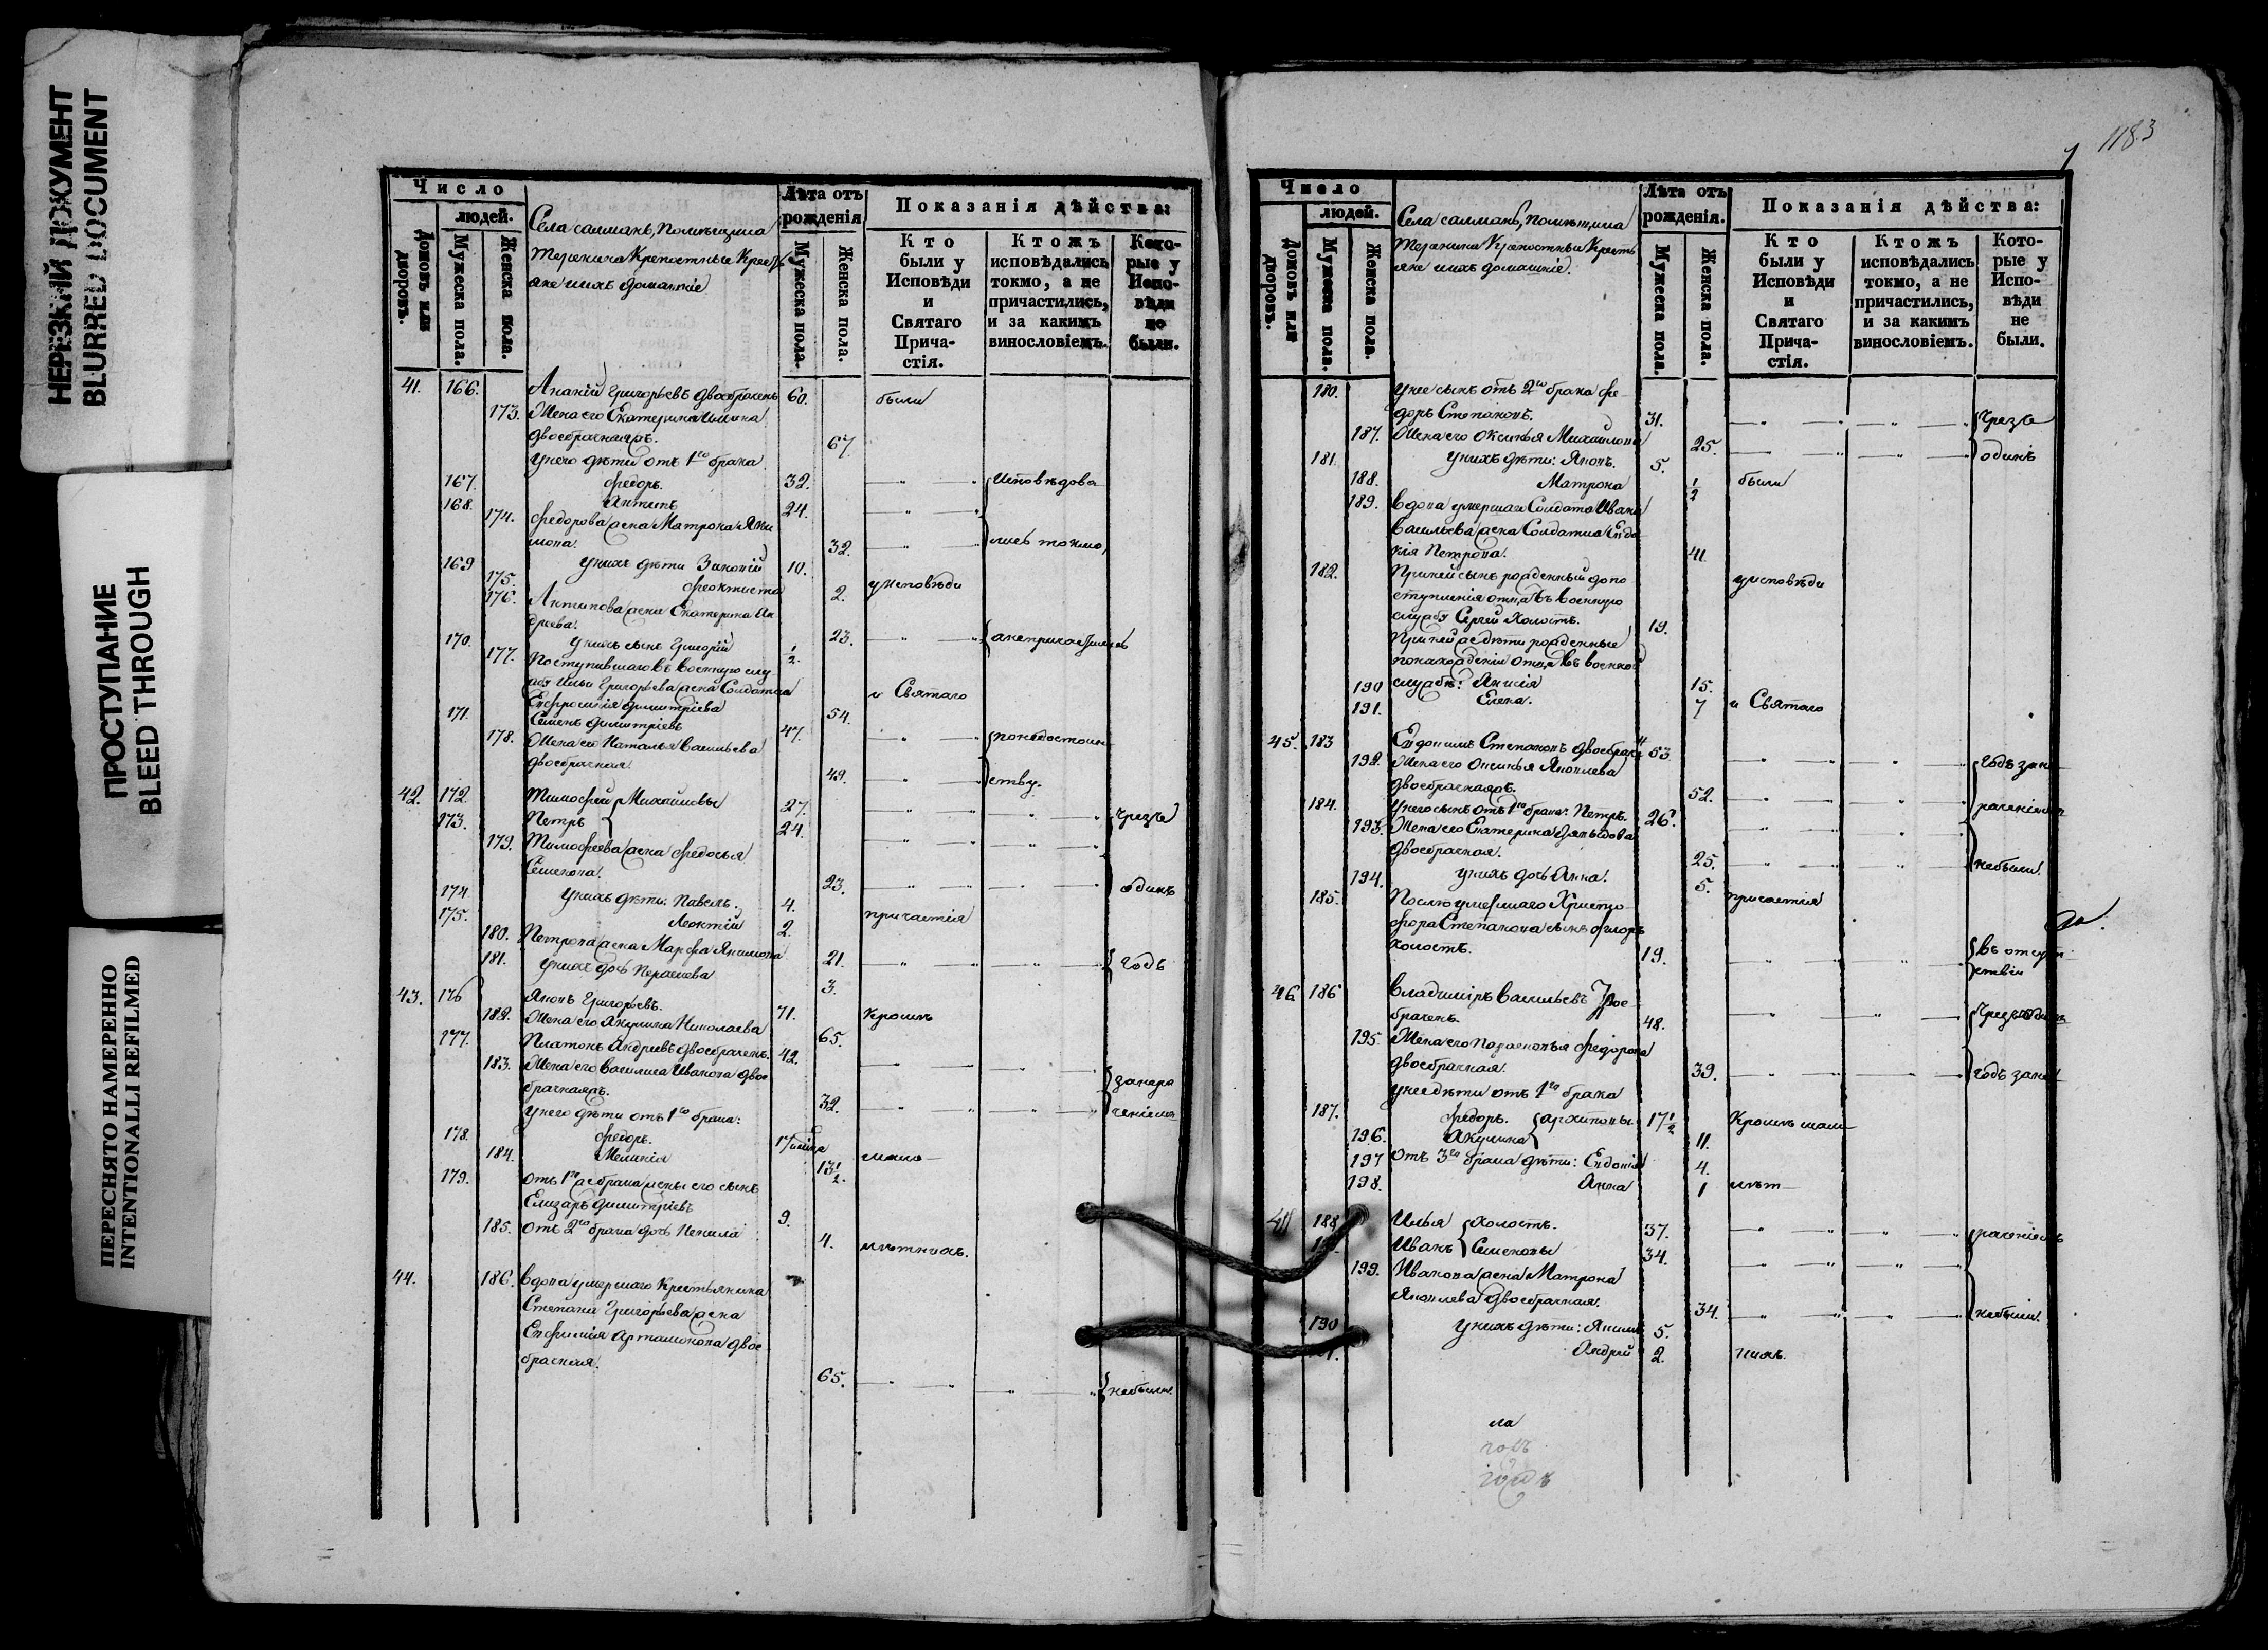 НЕРЕЗКИЙ ДОКУМЕНТ
BLURRED DOCUMENT
ПРОСТУПАНИЕ
BLEED THROUGH
ПЕРЕСНЯТО НАМЕРЕННО
INTENTIONALLI REFILMED
Число
людей.
Домовъ или дворовъ.
Мужеска пола.
Женска пола.
Села Салманъ, Помѣщика
Крепостные Кресть
яне ихъ домашніе
Лѣта отъ рожденія
Мужеска пола.
Женска пола.
Показанія дѣйства:
Кто были у Исповѣди и Святаго Причастія.
Ктожъ исповѣдались токмо, а не причастились, и за какимъ винословіемъ.
Которые у Исповѣди не были.
41. 166. Ананій Григорьевъ двоебраченъ 60. были
173. Жена его Екатерина
двоебрачнаяжъ. 67
у него дѣти отъ 1го брака
167. Федоръ. 32. Исповѣдова
168. Антипъ 24.
174. Федорова жена Матрона Яки
мова. 32. лись токмо,
169 у нихъ дѣти Зиновій 10.
175. Феоктиста 2. у Исповѣди
176. Антипова жена Екатерина Ан
дреева. 23. а непричастились
170. у нихъ сынъ Григорій ½.
177. Поступившаго въ военную слу
жбу Ильи Григорьева жена Солдатка
Евфросинія Димитріева 54. и Святаго
171. Семенъ Димитріевъ 47. понедостоин
178. Жена его Наталья Васильева
двоебрачная 49. ству.
42. 172. Тимофей Михайловы 27. Чрезъ
173. Петръ 24.
179. Тимофеева жена Федосья
Семенова. 23. одинъ
174 у нихъ дѣти: Павелъ. 4.
175. Леонтій 2. причастія
180. Петрова жена Марфа Якимова 21. годъ
181. у нихъ дочь 3.
43. 176 Яковъ Григорьевъ. 71.
182. Жена его Акулина Николаева 65. кромѣ
177. Платонъ Андреевъ двоебраченъ. 42.
183. Жена его Василиса Иванова двое
брачнаяжъ. 32. занера
ченіемъ
у него дѣти отъ 1го брака:
178. Федоръ.
184. Меланія 13½. мало
179. отъ 1го же брака жены его сынъ
Елизаръ Димитріевъ 9.
185. отъ 2го брака дочь Ненила 4. лѣтнихъ.
44. 186. вдова умершаго Крестьянина
Степана Григорьева жена
Евфимія Артамонова двое
брачная. 65. небыли.
1183
Число
людей.
Домовъ или дворовъ.
Мужеска пола.
Женска пола.
Села Салманъ, Помѣщика
Крепостные Кресть
яне ихъ домашніе.
Лѣта отъ рожденія.
Мужеска пола.
Женска пола.
Показанія дѣйства:
Кто были у Исповѣди и Святаго Причастія.
Ктожъ исповѣдались токмо, а не причастились, и за какимъ винословіемъ.
Которые у Исповѣди не были.
180. у нее сынъ отъ 2го брака Фе
доръ Степановъ. 31. Чрезъ
187. Жена его Оксинья Михайлова 25. одинъ
181 у нихъ дѣти: Яковъ. 5.
188. Матрона ½ были
189. вдова умершаго Солдата Ивана
Васильева жена Солдатка Евдо
кія Петрова. 41.
182. При ней сынъ рожденный до по
ступленія отца въ военную
службу Сергей холостъ. 19. у исповѣди
При ней же дѣти рожденные
по нахожденіи отца въ военной
190 службѣ: 15.
191. Елена. 7 и Святаго
45. 183 Евдокимъ Степановъ двоебрач 53
192. Жена его Оксинья Яковлева Годъ зане
двоебрачнаяжъ. 52.
184. у него сынъ отъ 1го брака: Петръ. 26. раченіемъ
193. Жена его Екатерина
двоебрачная. 25. небыли
194. у нихъ дочь Анна. 5.
185. После умершаго Христо
фора Степанова сынъ Флоръ причастія
холостъ. 19. въ отсут
ствіи
46. 186 Владиміръ Васильевъ 3рое
браченъ. 48. Чрезъ одинъ
195. Жена его Парасковья Федорова
двоебрачная. 39. годъ зане
у нее дѣти отъ 1го брака
187. Федоръ. Архиповы 17½ Кромѣ мало
196. Акулина 11.
197 отъ 3го брака дѣти: Евдокія 4.
198. Анна 1 лѣт
188 Илья холостъ. 37. раченіемъ
Иванъ Семеновы 34.
199. Иванова жена Матрона
Яковлева двоебрачная. 34. небыли.
190 у нихъ дѣти: Якимъ 5.
Андрей 2. нихъ.
ла
годъ
годъ